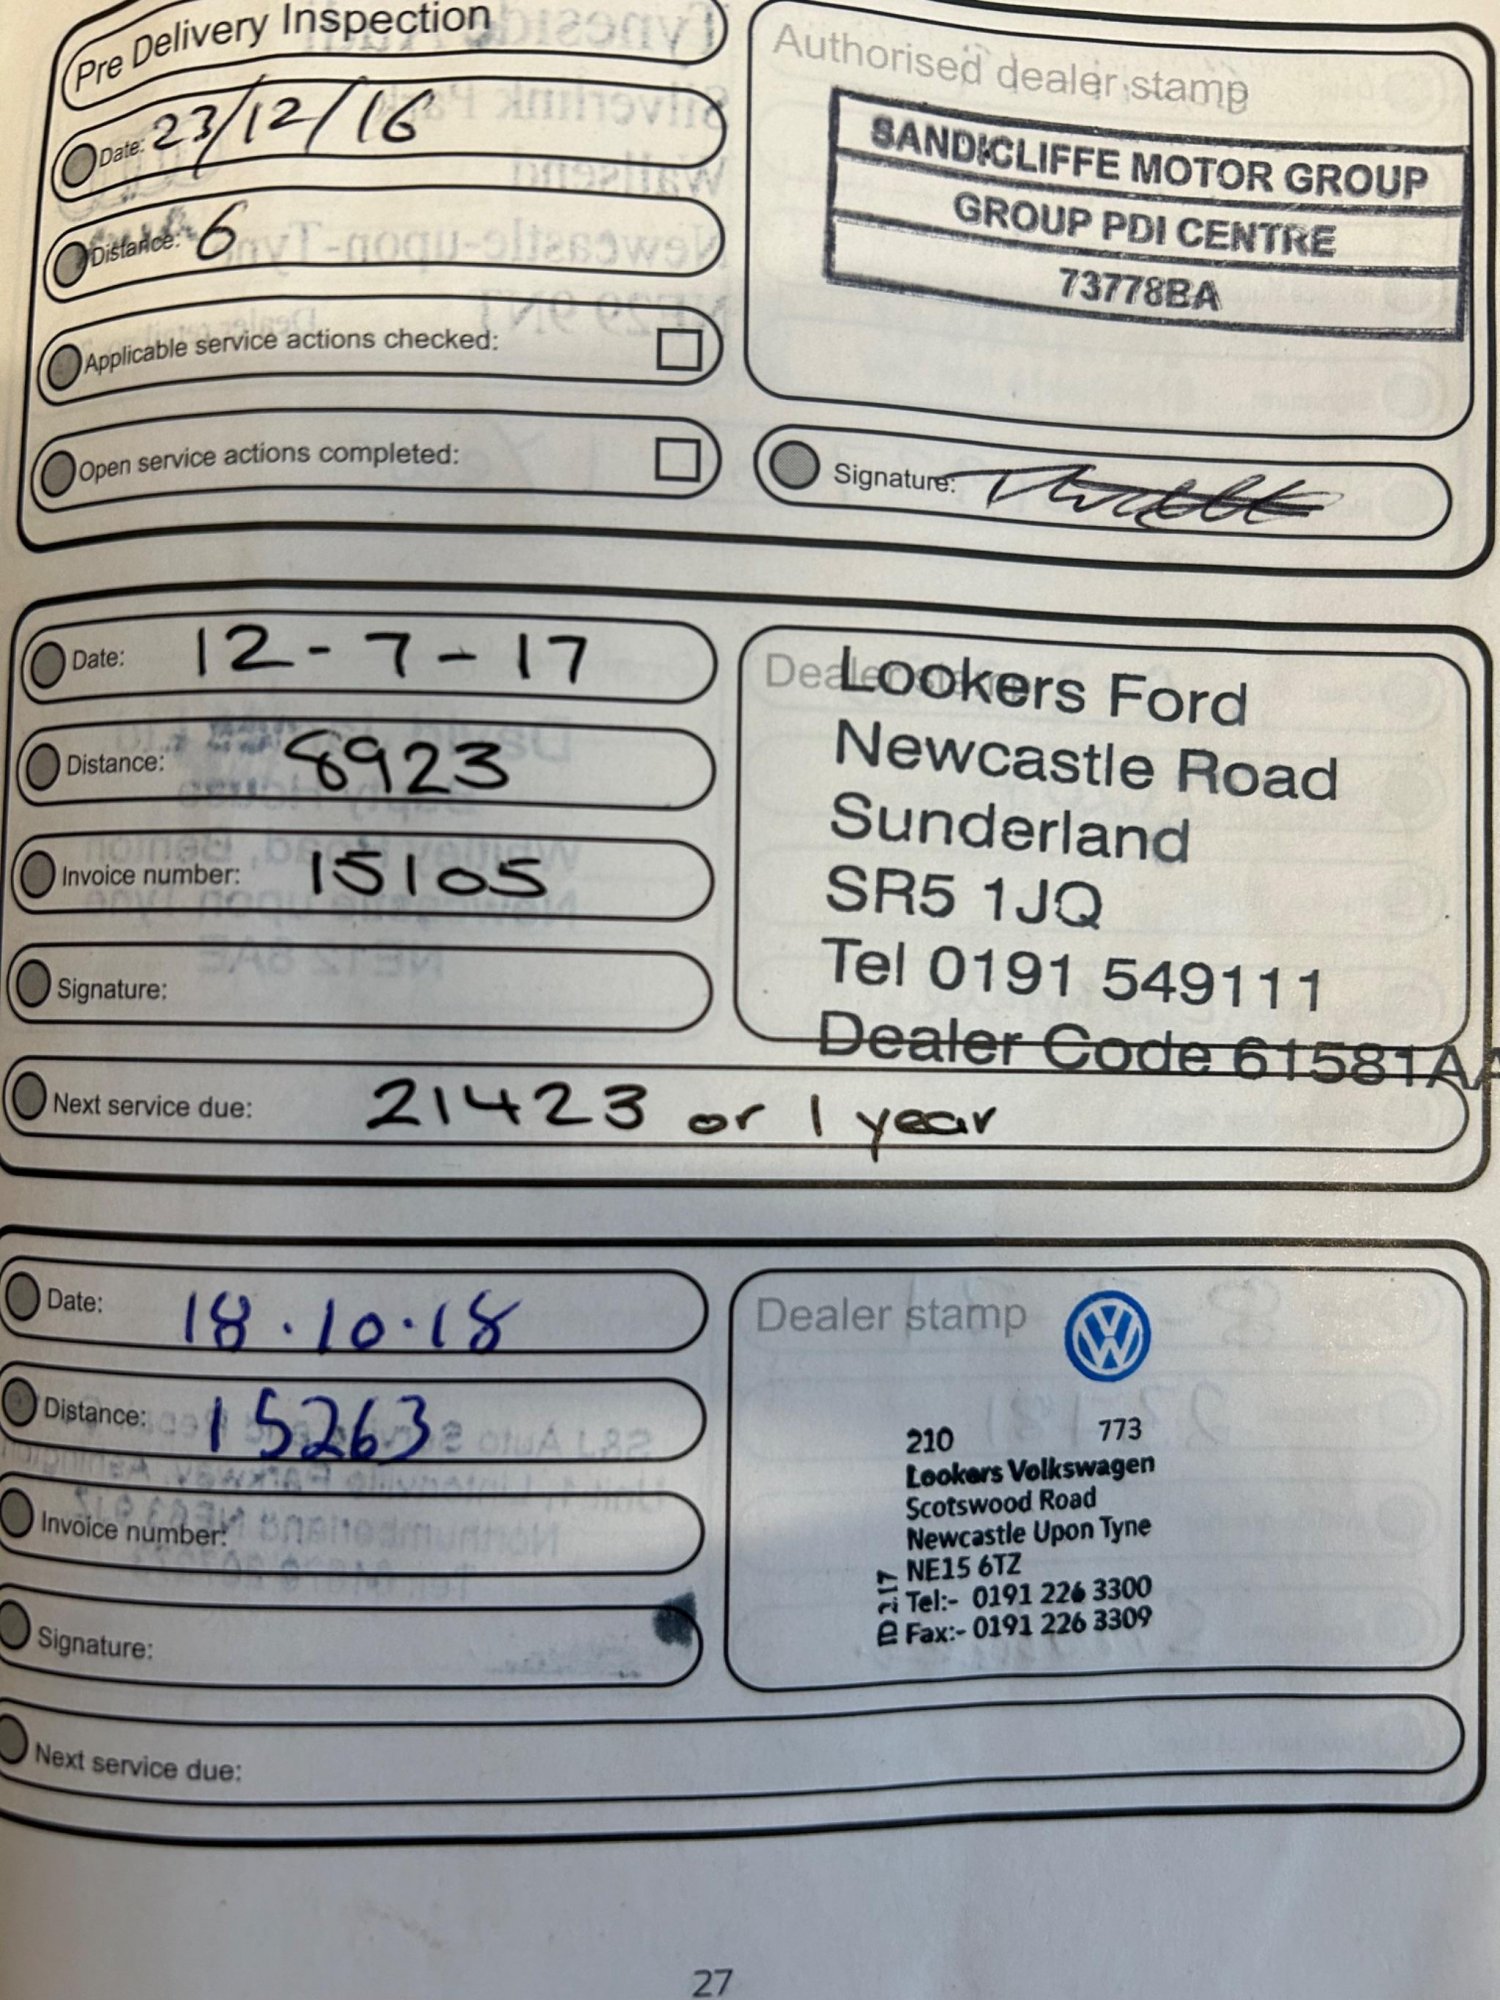 Pre Delivery Inspection
Date: 23/12/16
Distance: 6
Applicable service actions checked:
Open service actions completed:
Authorised dealer stamp
SANDICLIFFE MOTOR GROUP
GROUP PDI CENTRE
73778BA
Signature:
Date: 12-7-17
Distance: 8923
Invoice number: 15105
Signature:
Dealer stamp
Lookers Ford
Newcastle Road
Sunderland
SR5 1JQ
Tel 0191 549111
Dealer Code 61581AA
Next service due: 21423 or 1 year
Date: 18.10.18
Distance: 15263
Invoice number:
Signature:
Dealer stamp
210 773
Lookers Volkswagen
Scotswood Road
Newcastle Upon Tyne
NE15 6TZ
Tel:- 0191 226 3300
Fax:- 0191 226 3309
ID 217
Next service due:
27